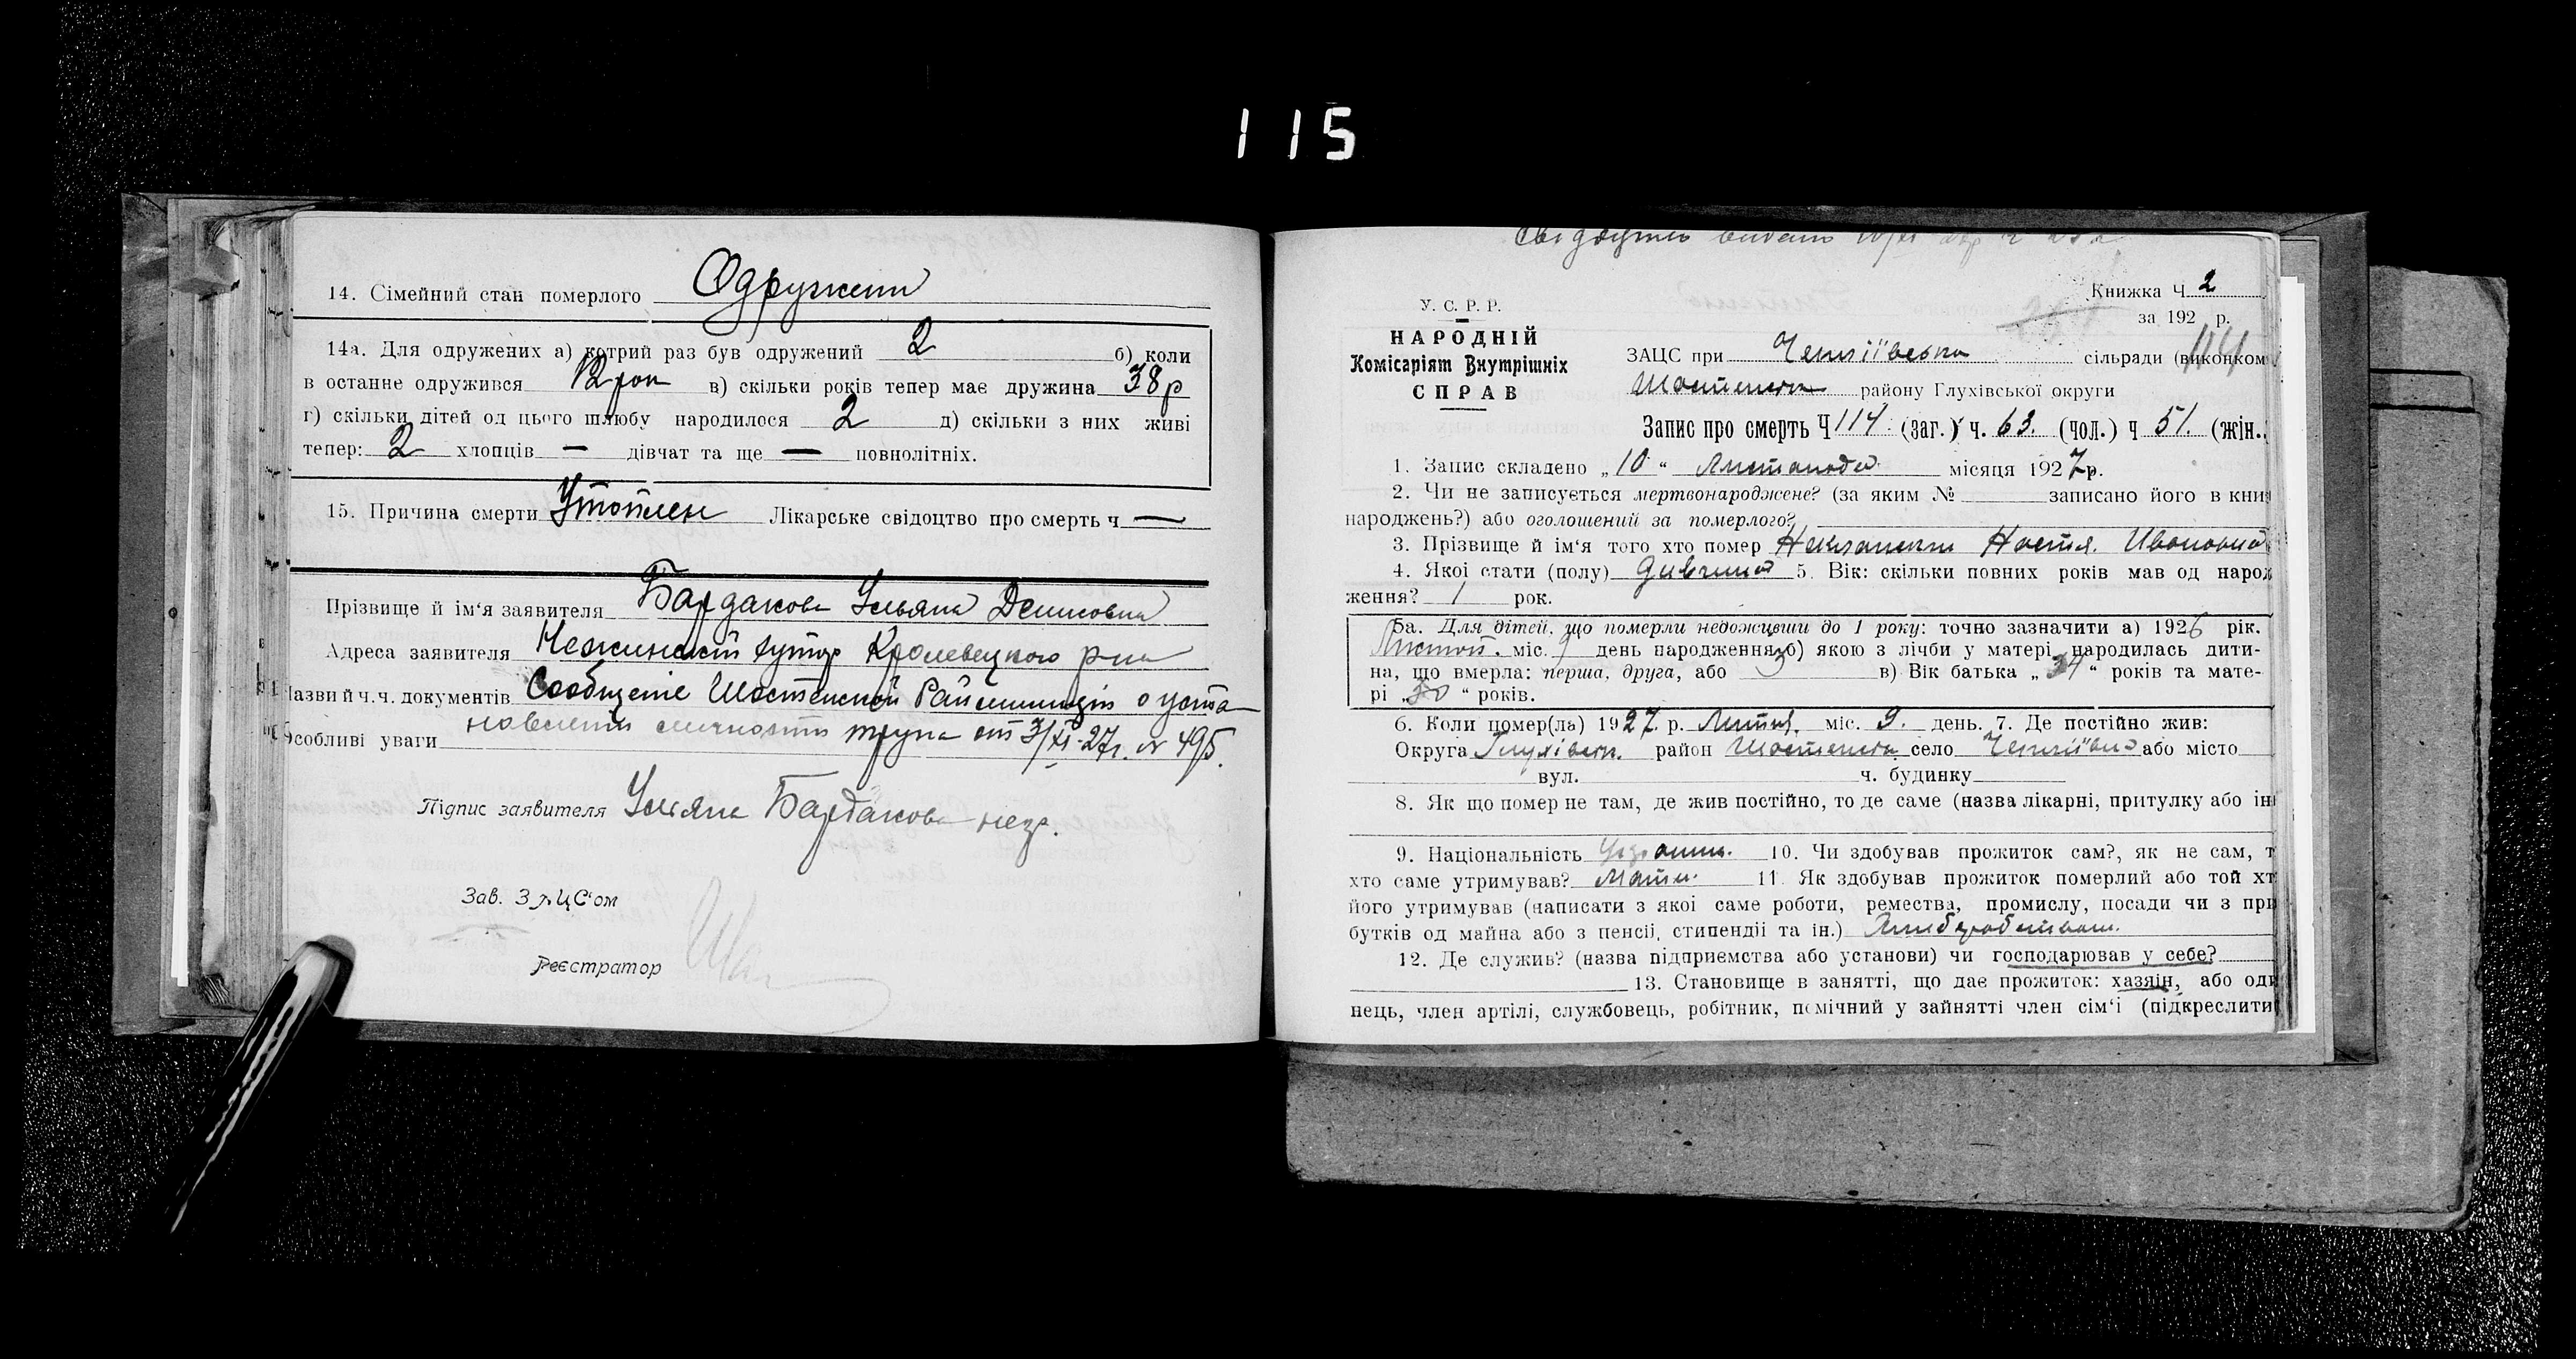 115
14. Сімейний стан померлого Одружени
14а. Для одружених а) котрий раз був одружений 2 б) коли
в останне одружився 12 рок в) скільки років тепер має дружина 38 р
г) скільки дітей од цього шлюбу народилося 2 д) скільки з них живі
тепер: 2 хлопців — дівчат та ще — повнолітніх.
15. Причина смерти Утоплен Лікарське свідоцтво про смерть ч —
Прізвище й ім'я заявителя Бардакова Ульяна Денисовна
Адреса заявителя хутор Кролевецкого р-на
Назви й ч.ч. документів Сообщение Шостенской Раймилиции о уста-
новлении личности трупа от 3/XI-27г. № 495.
Особливі уваги
Підпис заявителя Ульяна Бардакова негр.
Зав. ЗАЦС'ом
Реєстратор
Книжка Ч 2
за 192 р.
114
У. С. Р. Р.
НАРОДНІЙ
Комісаріят Внутрішніх
СПРАВ
ЗАЦС при сільради (виконком
Шостенськ району Глухівської округи
Запис про смерть Ч 114 (заг.) ч. 63. (чол.) ч 51. (жін.
1. Запис складено „10" Листопада місяця 1927 р.
2. Чи не записується мертвонароджене? (за яким № записано його в кни
народжень?) або оголошений за померлого?
3. Прізвище й ім'я того хто помер Настя Ивановна
4. Якої стати (полу) дивчина 5. Вік: скільки повних років мав од народ
ження? 1 рок.
5а. Для дітей, що померли недоживши до 1 року: точно зазначити а) 1926 рік.
Листоп. міс. 9 день народження б) якою з лічби у матері народилась дити-
на, що вмерла: перша, друга, або 3 в) Вік батька „34" років та мате-
рі „30" років.
6. Коли помер(ла) 1927 р. Листоп. міс. 9. день. 7. Де постійно жив:
Округа Глухівськ. район Шостенськ село або місто
вул. ч. будинку
8. Як що помер не там, де жив постійно, то де саме (назва лікарні, притулку або ін
9. Національність Україин. 10. Чи здобував прожиток сам?, як не сам, т
хто саме утримував? Мати. 11. Як здобував прожиток померлий або той хт
його утримував (написати з якої саме роботи, ремества, промислу, посади чи з при
бутків од майна або з пенсії, стипендії та ін.) Хлиборобством.
12. Де служив? (назва підприємства або установи) чи господарював у себе?
13. Становище в занятті, що дає прожиток: хазяїн, або оди
нець, член артілі, службовець, робітник, помічний у зайнятті член сім'ї (підкреслити